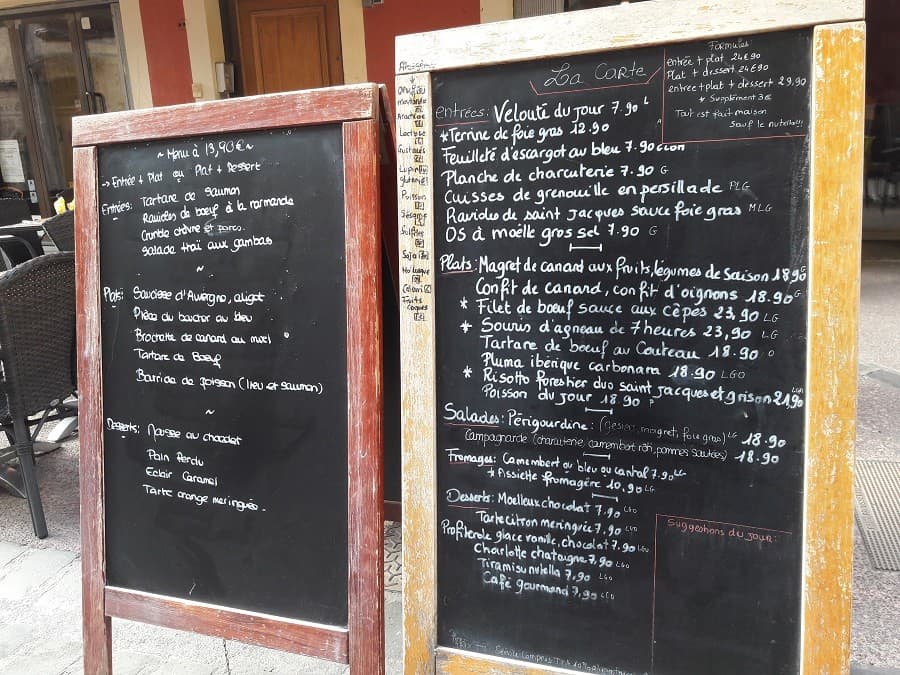 ~ Menu à 13,90€ ~
→ Entrée + Plat ou Plat + Dessert
Entrées: Tartare de saumon
Ravioles de bœuf à la normande
Crumble chèvre et poireo.
Salade thaï aux gambas
~
Plats: Saucisse d'Auvergne, aligot
Pièce du boucher au bleu
Brochette de canard au miel
Tartare de Bœuf
Barride de poisson (lieu et saumon)
~
Desserts: Mousse au chocolat
Pain Perdu
Eclair Caramel
Tarte orange meringuée.
La Carte
Formules:
entrée + plat 24€90
Plat + dessert 24€90
entrée + plat + dessert 29,90
* Supplément 3€
Tout est fait maison
Sauf le nutella!!!
entrées: Velouté du jour 7.90 L
*Terrine de foie gras 12.90
Feuilleté d'escargot au bleu 7.90
Planche de charcuterie 7.90 G
Cuisses de grenouille en persillade PLG
Ravioles de saint Jacques sauce foie gras MLG
OS à moëlle gros sel 7.90 G
Plats: Magret de canard aux fruits, légumes de saison 18,90 G
Confit de canard, confit d'oignons 18.90 G
* Filet de bœuf sauce aux cèpes 23,90 LG
* Souris d'agneau de 7 heures 23,90 LG
Tartare de boeuf au Couteau 18.90 O
Pluma ibérique carbonara 18.90 LGO
* Risotto forestier duo saint Jacques et grison 21,90
Poisson du jour 18.90 P
Salades: Périgourdine: (gesier, magret, foie gras) LG 18.90
Campagnarde (charcuterie, camembert rôti, pommes sautées) 18.90
Fromages: Camembert ou bleu ou cantal 7.90 LG
* Assiette fromagère 10,90 LG
Desserts: Moelleux chocolat 7.90 LGO
Tarte citron meringuée 7,90 LGO
Profiterole glace vanille, chocolat 7.90 LGO
Charlotte chataigne 7,90 LGO
Tiramisu nutella 7,90 LGO
Café gourmand 7,90 LGO
Suggestions du jour:
Service Compris
moutarde
Arachide
Lactose
Lupin
gluten
Poisson
Sésame
Sulfite
Soja
Céleri
Fruits
coques